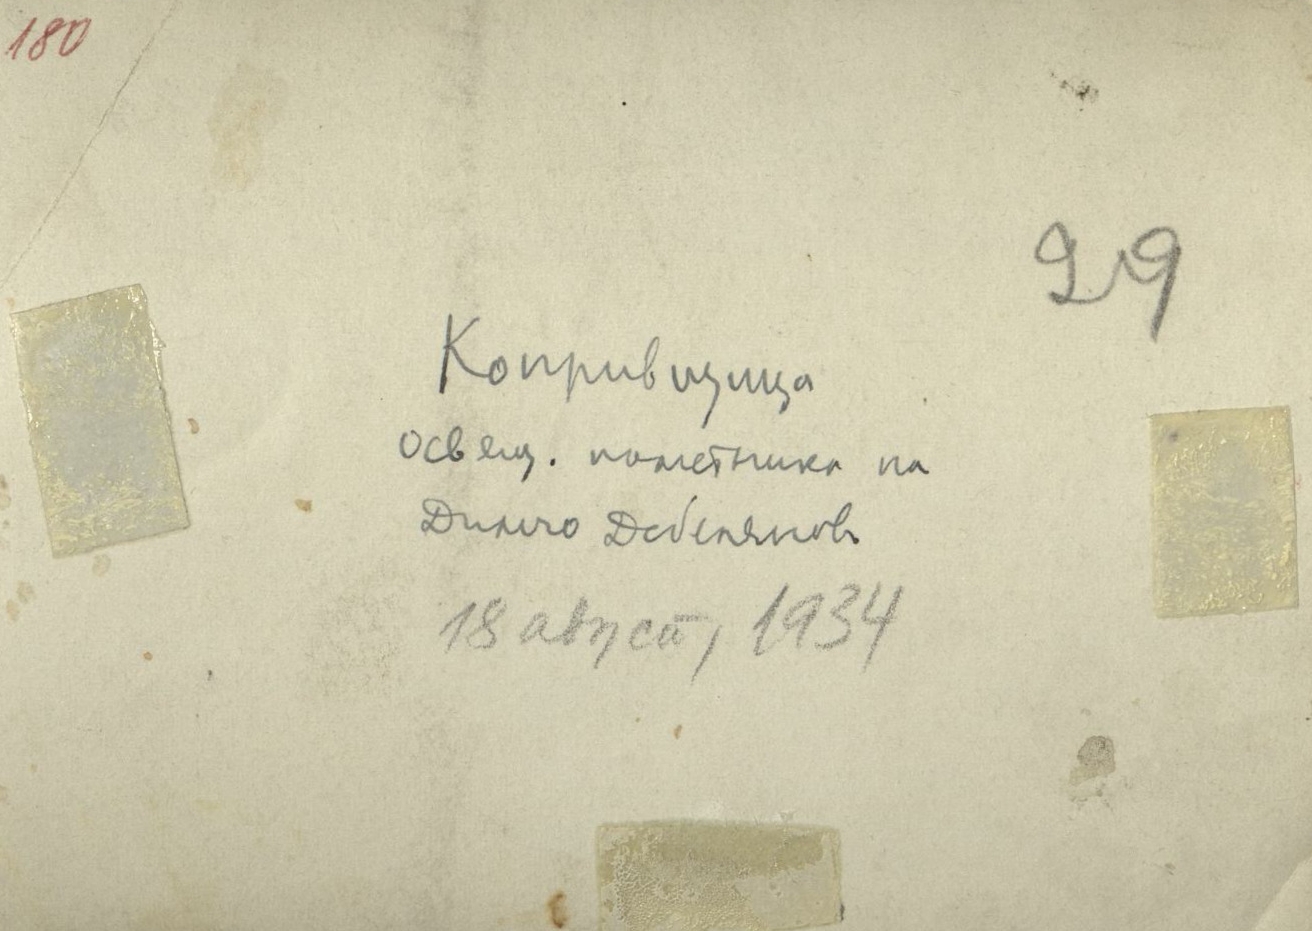 180
29
Копривщица
освящ. паметника на
Димчо Дебелянов
18 август, 1934